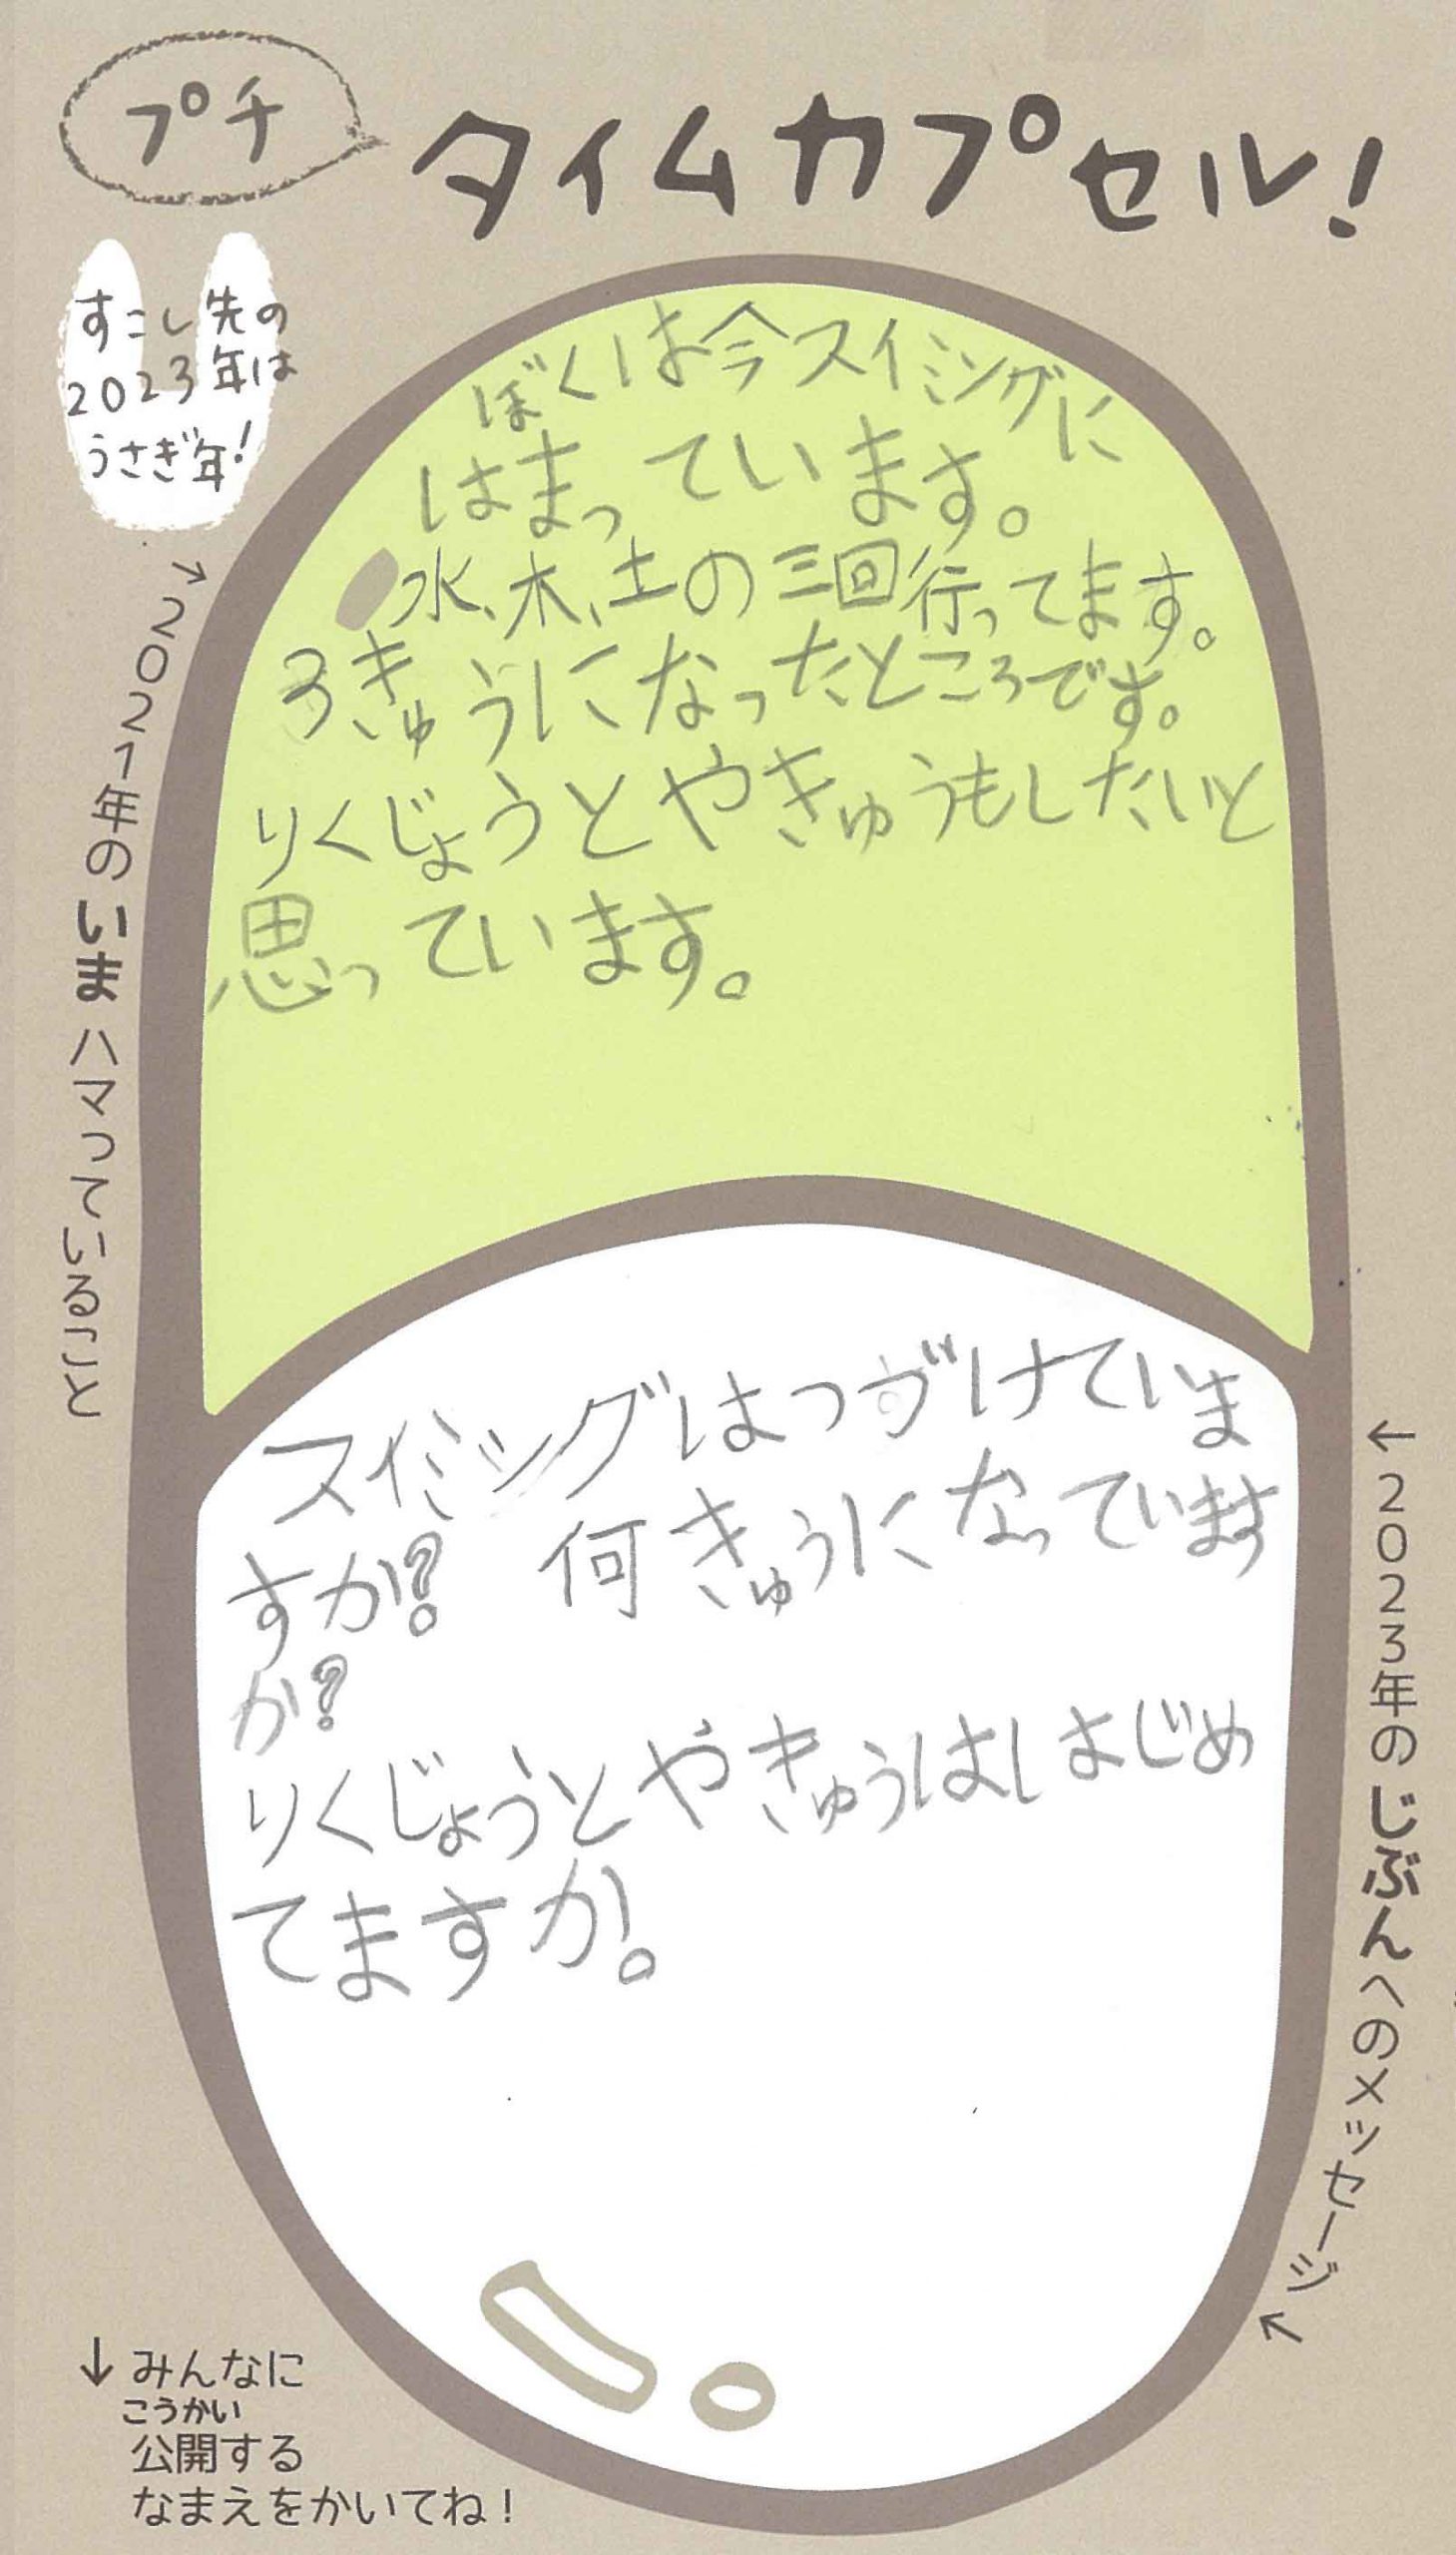 プチ
タイムカプセル!
すこし先の
2023年は
うさぎ年!
→2021年のいまハマっていること
ぼくは今スイミングに
はまっています。
水、木、土の三回行ってます。
3きゅうになったところです。
りくじょうとやきゅうもしたいと
思っています。
←2023年のじぶんへのメッセージ↑
スイミングはつづけていま
すか? 何きゅうになっています
か?
りくじょうとやきゅうははじめ
てますか。
↓みんなに
こうかい
公開する
なまえをかいてね!